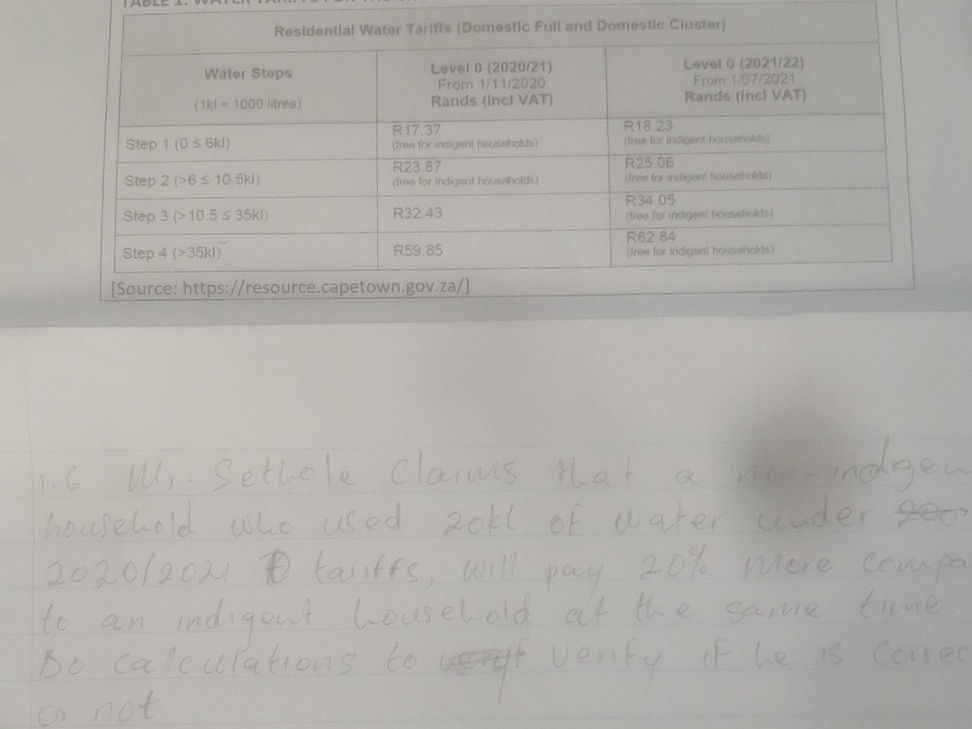 Residential Water Tariffs (Domestic Full and Domestic Cluster)
Water Steps
(1kl = 1000 litres)
Level 0 (2020/21)
From 1/11/2020
Rands (incl VAT)
Level 0 (2021/22)
From 1/07/2021
Rands (incl VAT)
Step 1 (0 ≤ 6kl)
R17.37
(free for indigent households)
R18.23
(free for indigent households)
Step 2 (>6 ≤ 10.5kl)
R23.87
(free for indigent households)
R25.06
(free for indigent households)
Step 3 (>10.5 ≤ 35kl)
R32.43
R34.05
(free for indigent households)
Step 4 (>35kl)
R59.85
R62.84
(free for indigent households)
[Source: https://resource.capetown.gov.za/]
1.6 Mr. Sethole Claims that a non-indigen
household who used 20kl of water under
2020/2021 tariffs, will pay 20% more compa
to an indigent household at the same time.
Do calculations to verify if he is correc
or not